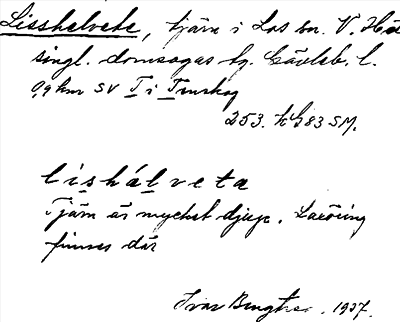 Lisshelvete, tjärn i Los sn. V. Hä
singl. domsagas tg. Gävleb. l.
0,9 km SV T i Tenskog
253. h G 83 SM.
lishálveta
Tjärn är mycket djup. Laxöring
finnes där
Ivar Bengtsson. 1937.